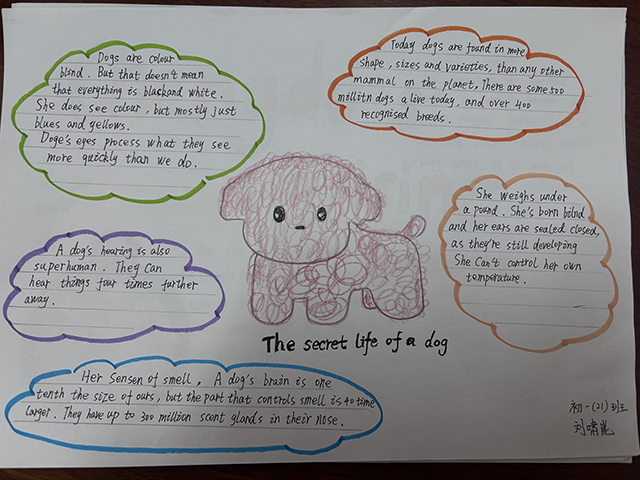 Dogs are colour
blind. But that doesn't mean
that everything is blackand white.
She does see colour, but mostly just
blues and yellows.
Doge's eyes process what they see
more quickly than we do.
Today dogs are found in more
shape, sizes and varieties, than any other
mammal on the planet, There are some 500
million dogs a live today, and over 400
recognised breeds.
A dog's hearing is also
superhuman. They can
hear things four times further
away.
She weighs under
a pound. She's born blind
and her ears are sealed closed,
as they're still developing
She Can't control her own
temperature.
The secret life of a dog
Her Sensen of smell, A dog's brain is one
tenth the size of ours, but the part that controls smell is 40 time
larger. They have up to 300 million scent glands in their nose.
初一(21)班
刘啸崑